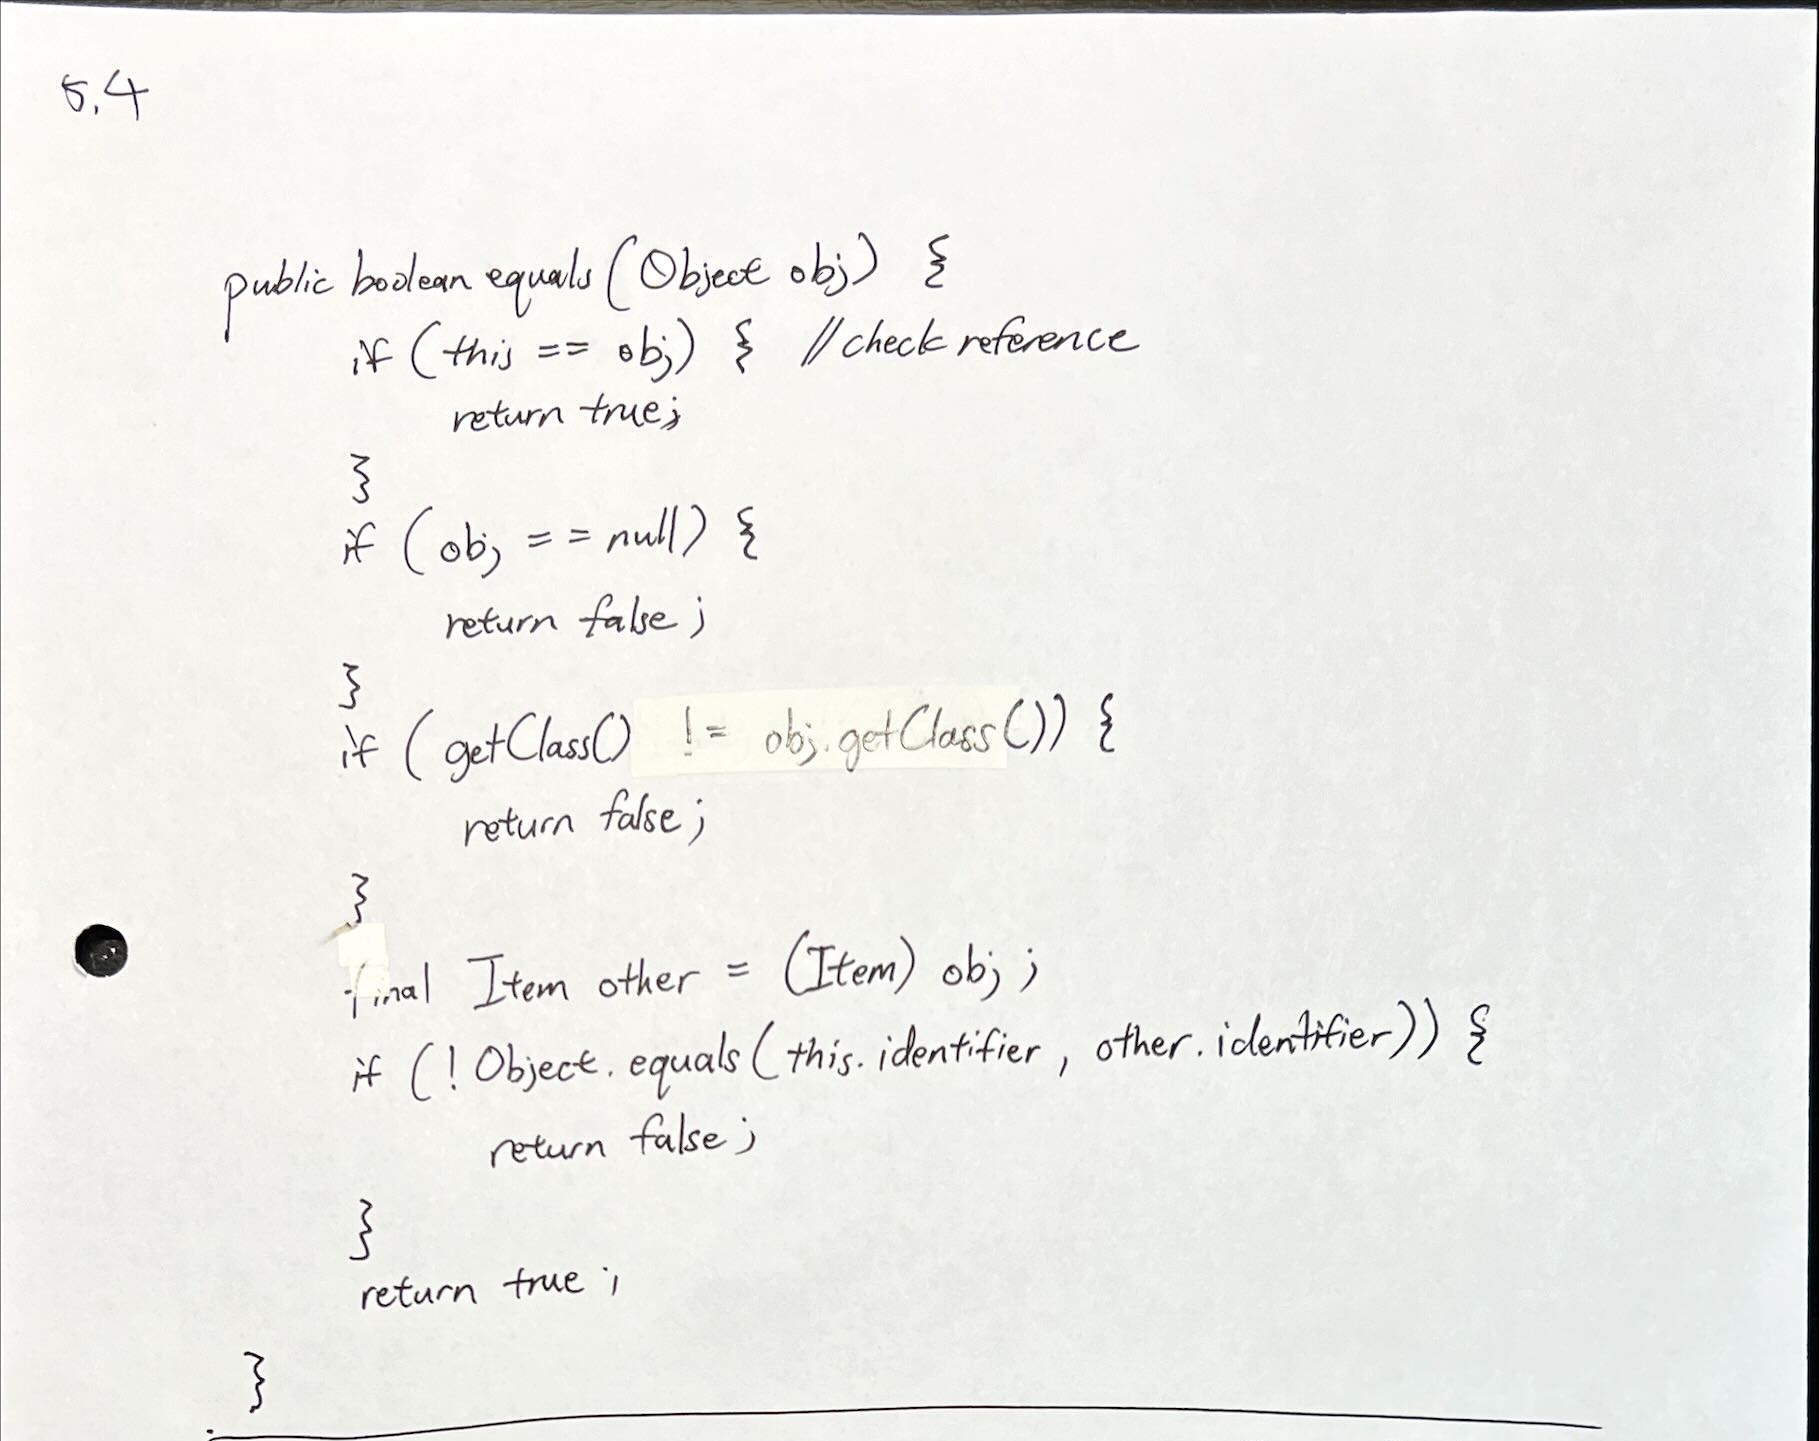 5.4
public boolean equals(Object obj) {
if (this == obj) { //check reference
return true;
}
if (obj == null) {
return false;
}
if (getClass() != obj.getClass()) {
return false;
}
final Item other = (Item) obj;
if (! Object.equals(this.identifier, other.identifier)) {
return false;
}
return true;
}